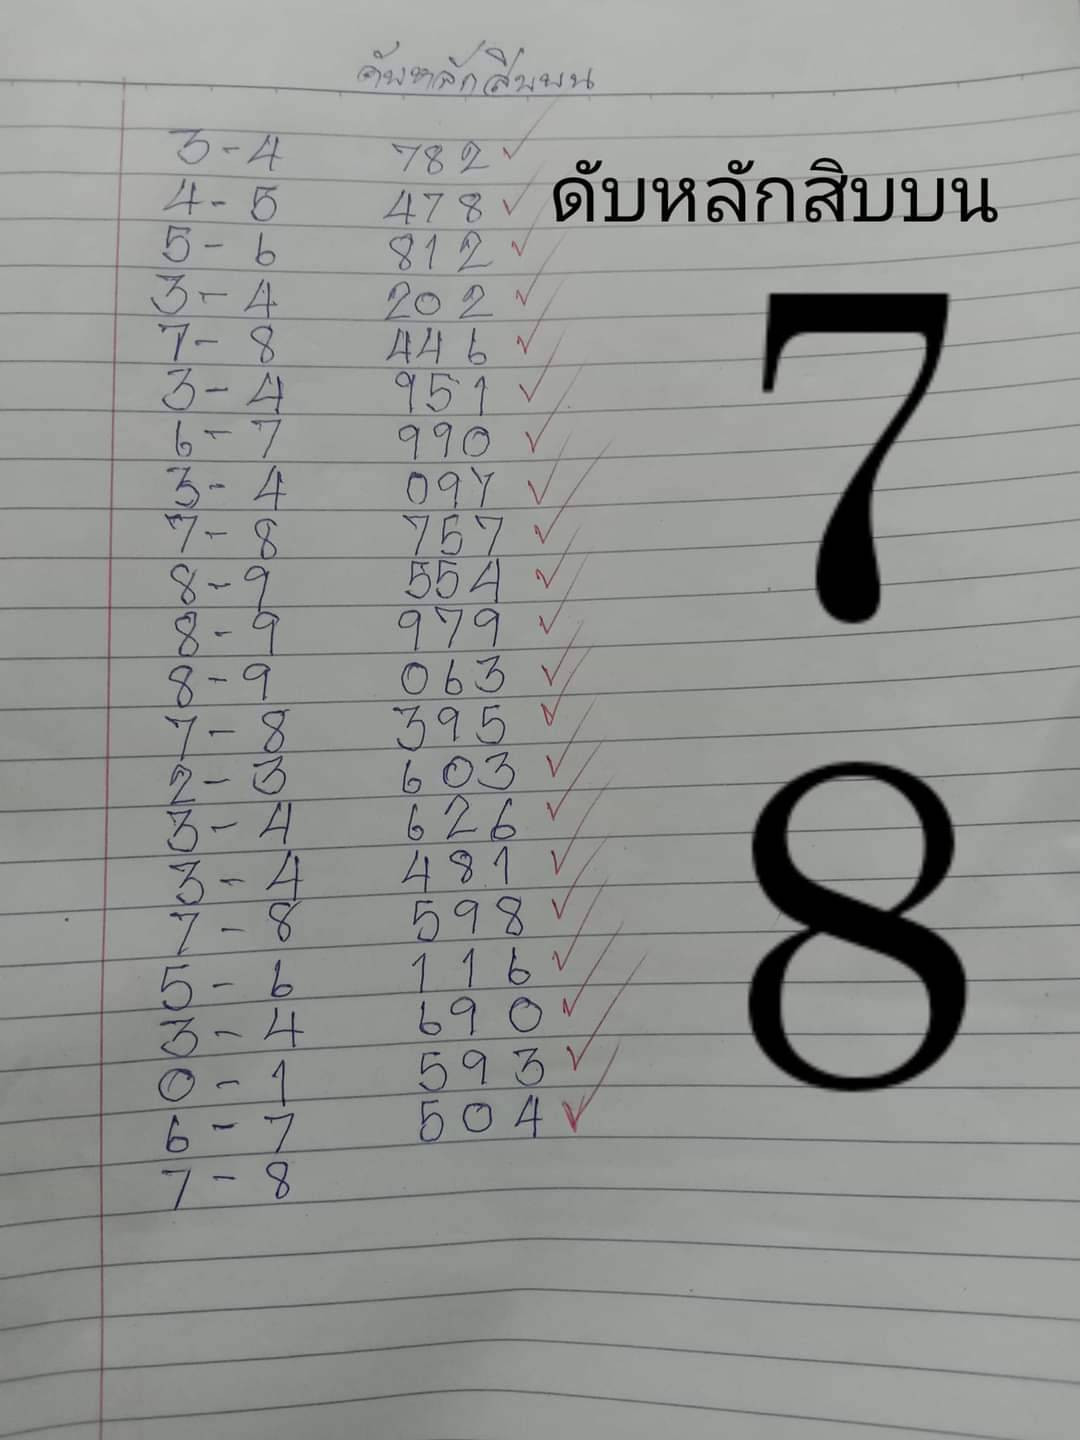 ดับหลักสิบบน
3-4 782 ✓
ดับหลักสิบบน
4-5 478 ✓
5-6 812 ✓
3-4 202 ✓
7-8 446 ✓
3-4 951 ✓
6-7 990 ✓
3-4 097 ✓
7-8 757 ✓
8-9 554 ✓
8-9 979 ✓
8-9 063 ✓
7-8 395 ✓
2-3 603 ✓
3-4 626 ✓
3-4 481 ✓
7-8 598 ✓
5-6 116 ✓
3-4 690 ✓
0-1 593 ✓
6-7 504 ✓
7-8
7
8